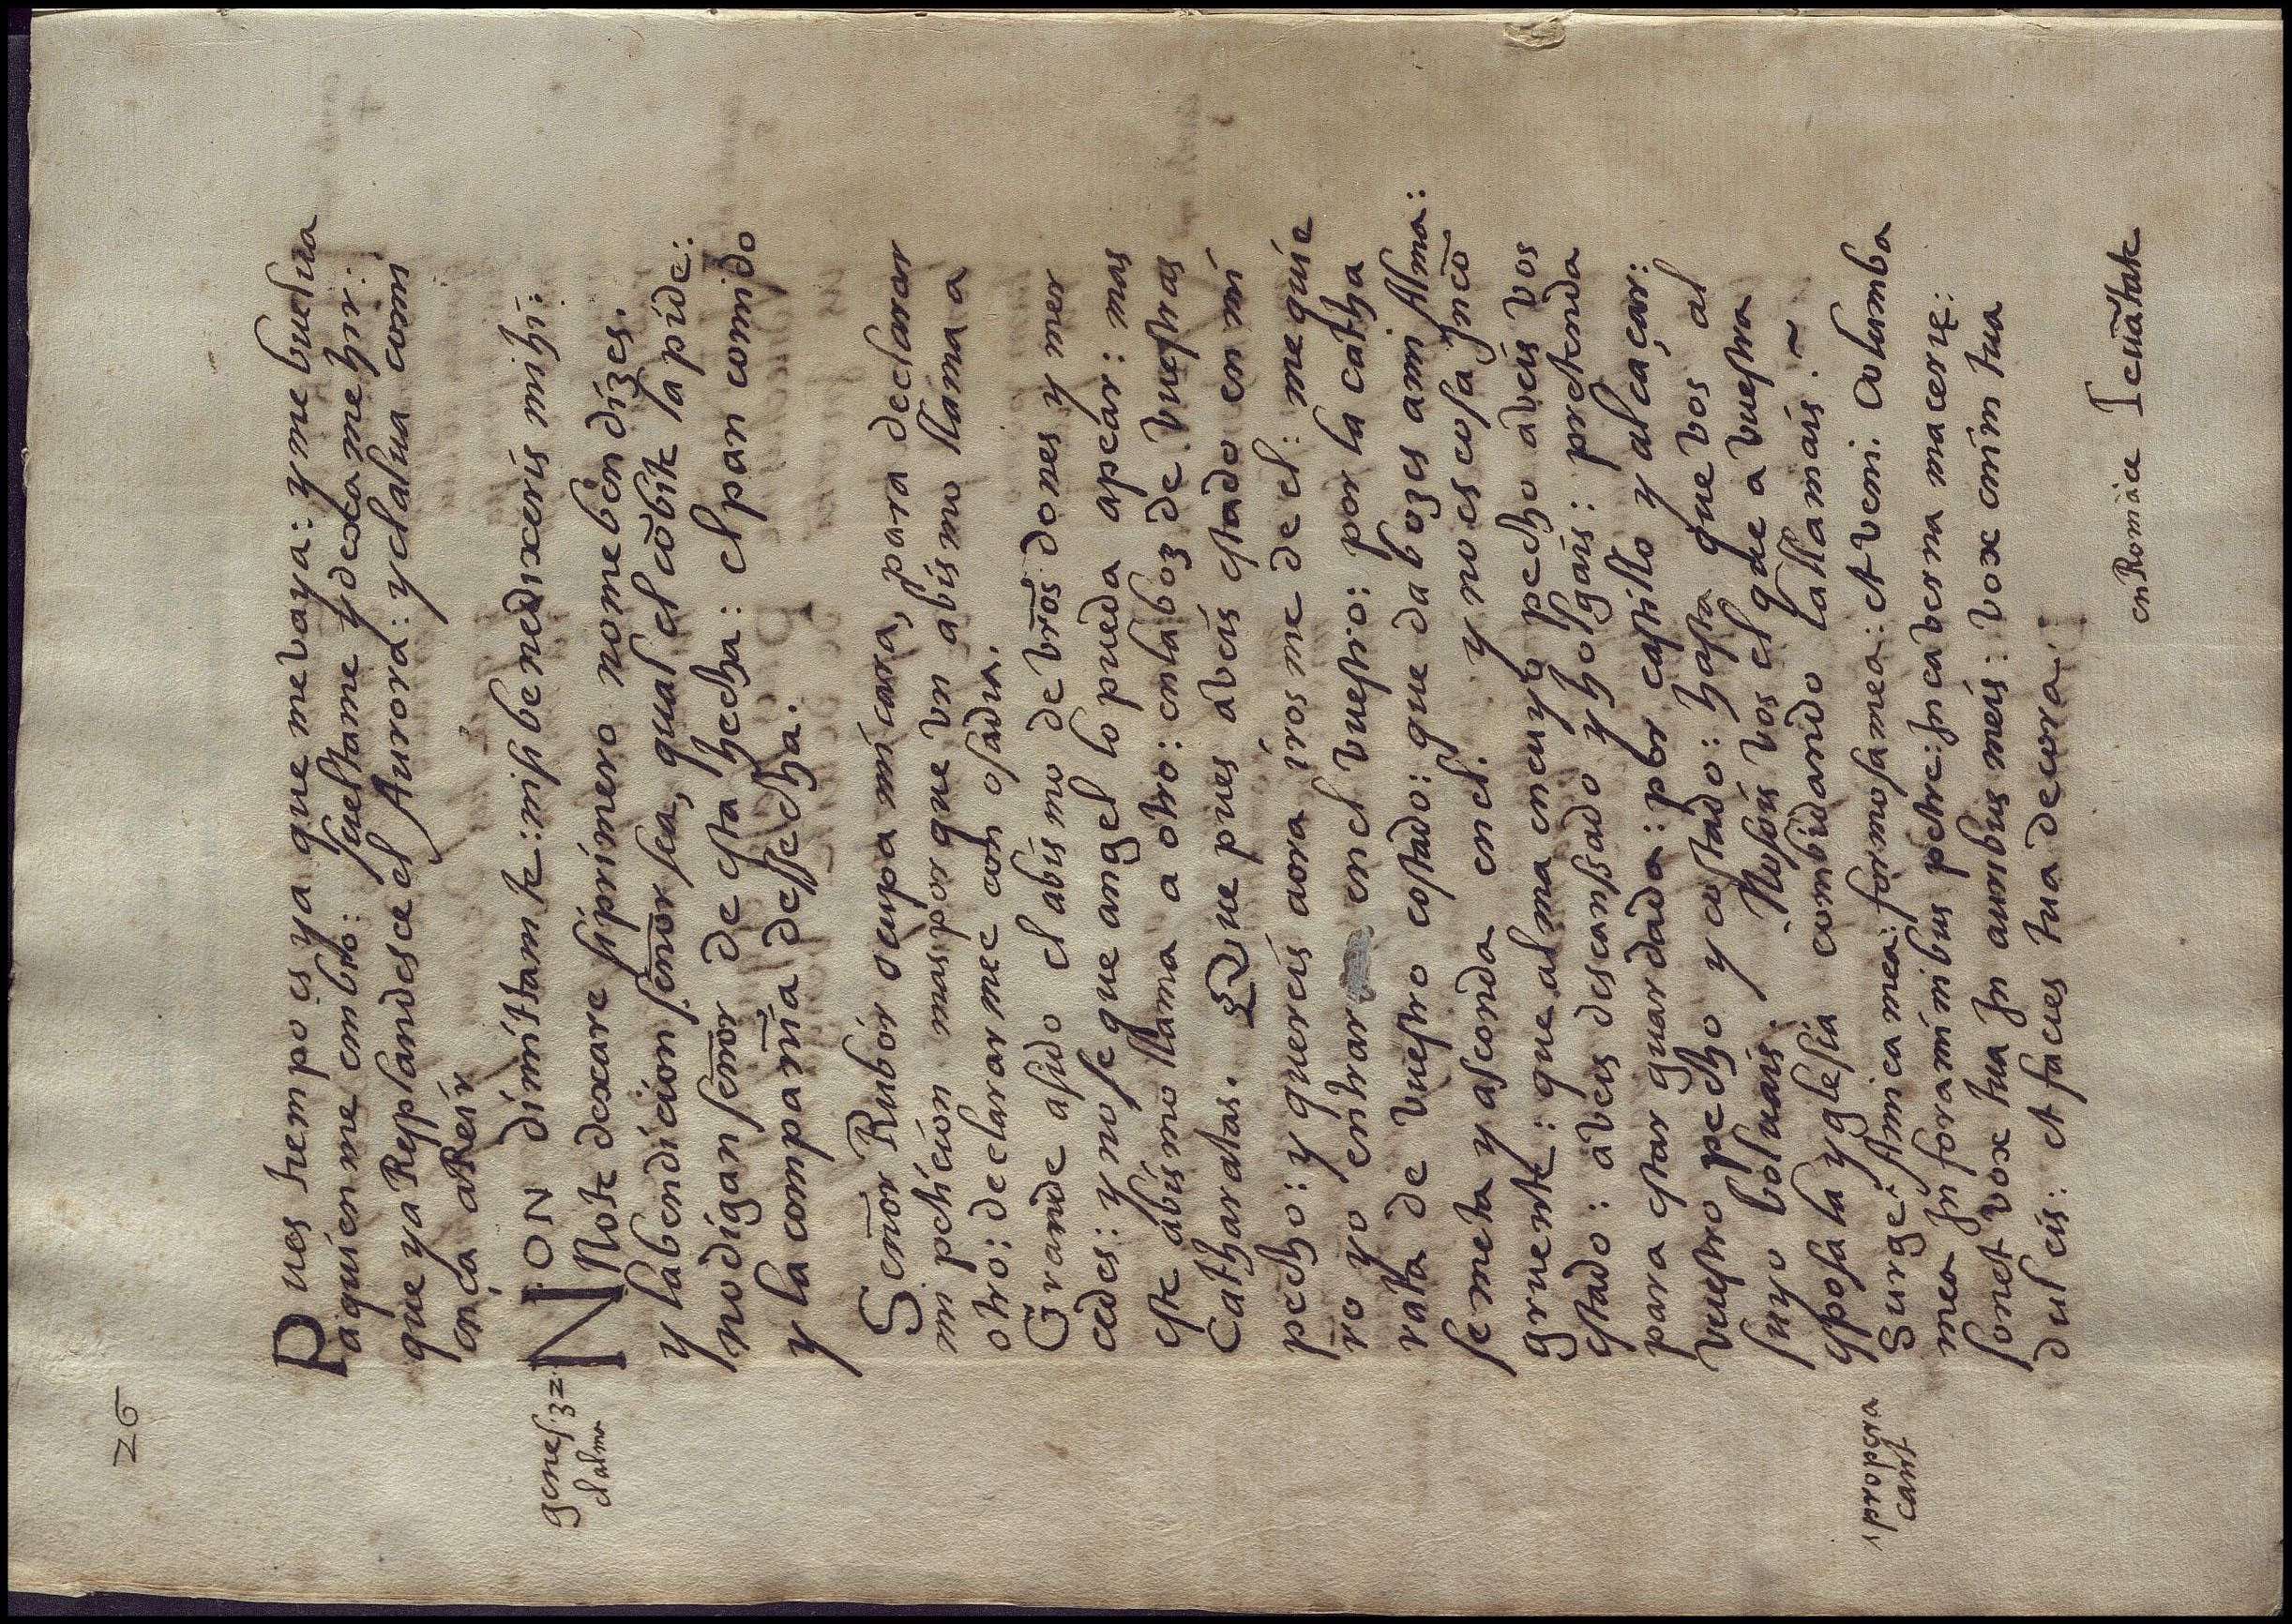 26
Pues tiempo es ya que me vaya: y me buelua
a quien me embio: sueltame y dexa me hir:
que ya Resplandesce el Aurora: y el alua comi
ença a Reir
genes. 32.
el alma
NON dimittam te: nisi benedixeris mihi:
No te dexare si primero no me bendizes.
y la bendicion señor sea, qual el cōbite la pide:
no digan señor de esta hecha: el pan comido
y la compañia dessecha.
Señor Rubor ocupa mi cara, para declarar
mi peticion mas porque vn abismo llama a
otro: declarar me e con osadia.
Grande a sido el abismo de vr̄os dones y mer
cedes: y no se que angel lo pueda apear: mas
este abismo llama a otro: en la boz de vuestras
Catharatas. Que pues aveis estado en mi
pecho: y quereis aora iros me de el: me quie
ro yo entrar en el vuestro: por la catha
rata de vuestro costado: que da bozes a mi Alma:
se meta y asconda en el. y no es cosa Incō
gruente: que alma en cuyo pecho aveis vos
estado: aveis descanssado y holgais: pretenda
para estar guardada: por castillo y alcaçar:
vuestro pecho y costado: hasta que vos al
suyo boluais. No sois vos el que a vuestra
esposa la yglesia combidando la llamais. ~
propera
cant
Surge Amica mea: formosa mea: et veni. Columba
mea In foraminibus petre: In caverna macerię:
sonet vox tua In auribus meis: vox enim tua
dulcis: et facies tua decora.
en Romāce Leuātate